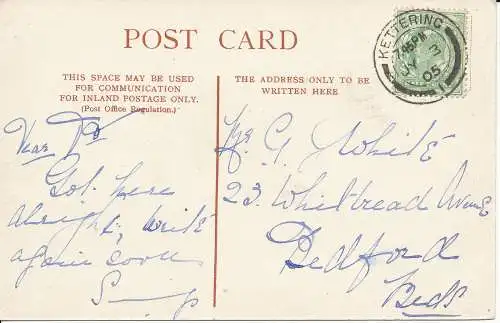 POST CARD
THIS SPACE MAY BE USED
FOR COMMUNICATION
FOR INLAND POSTAGE ONLY.
(Post Office Regulation.)
THE ADDRESS ONLY TO BE
WRITTEN HERE
KETTERING
7.45PM
JY 3
05
Dear
Got here
alright, write
again soon
G White
23, Whitbread Avenue
Bedford
Beds